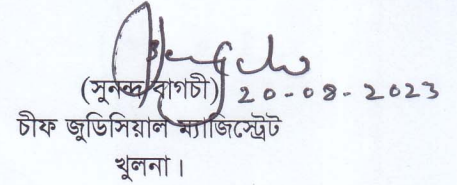 (সুনন্দ বাগচী) 20-08-2023
চীফ জুডিসিয়াল ম্যাজিস্ট্রেট
খুলনা।